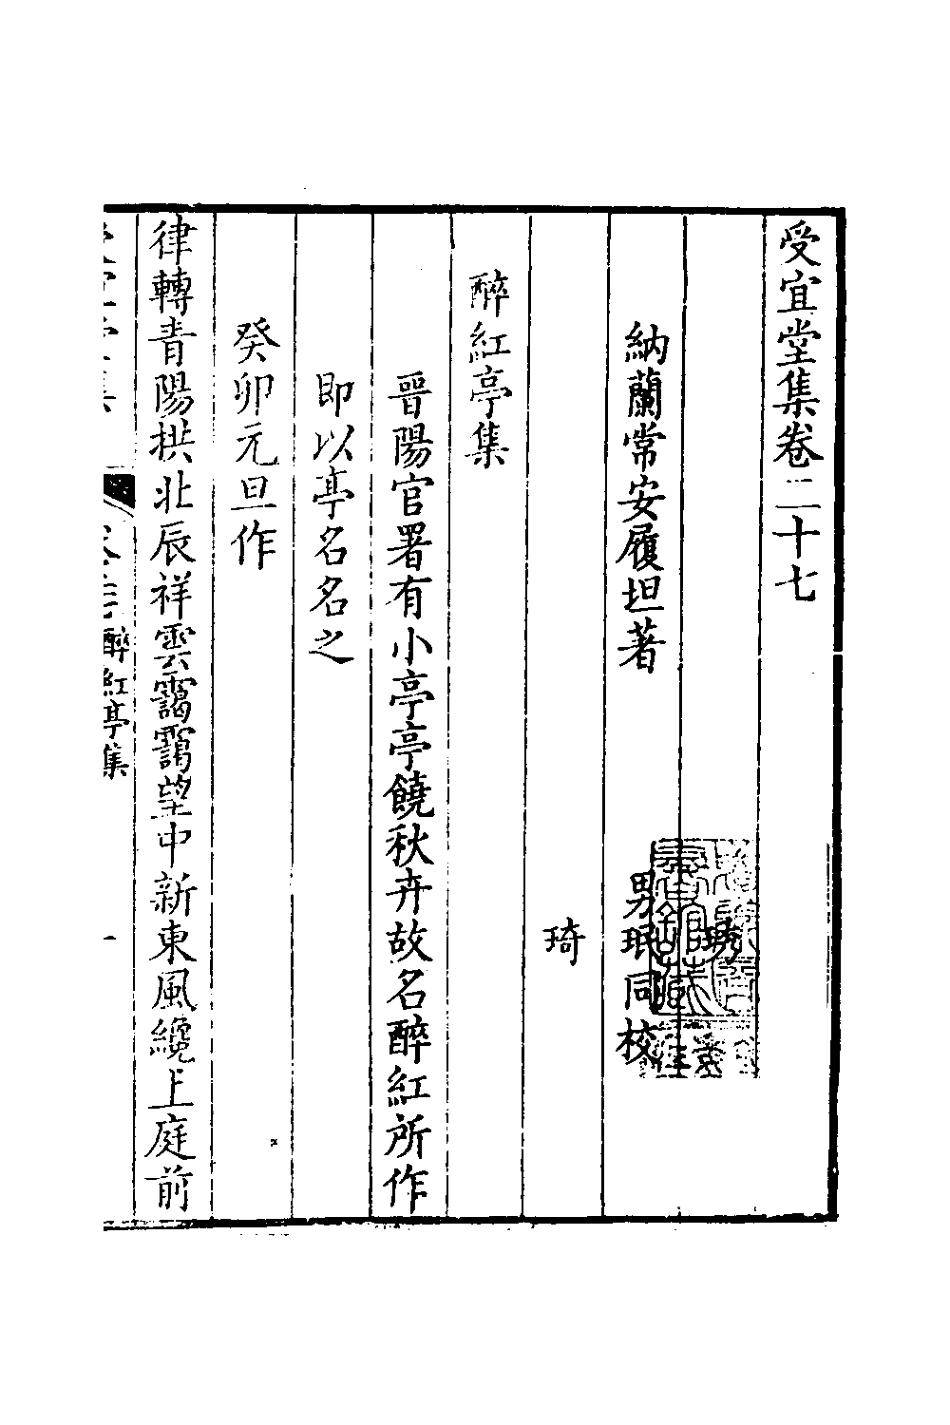 受宜堂集卷二十七
琇
納蘭常安履坦著　男珉同校
琦
醉紅亭集
晉陽官署有小亭亭饒秋卉故名醉紅所作
即以亭名名之
癸卯元旦作
律轉青陽拱北辰祥雲靄靄望中新東風纔上庭前
醉紅亭集
一